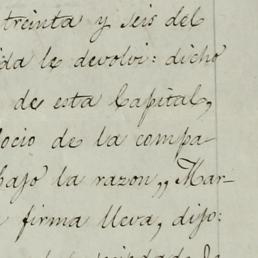 treinta y seis del
ida le devolvi: dicho
de esta Capital,
ocio de la compa-
bajo la razon,, Mar-
firma lleva, dijo: